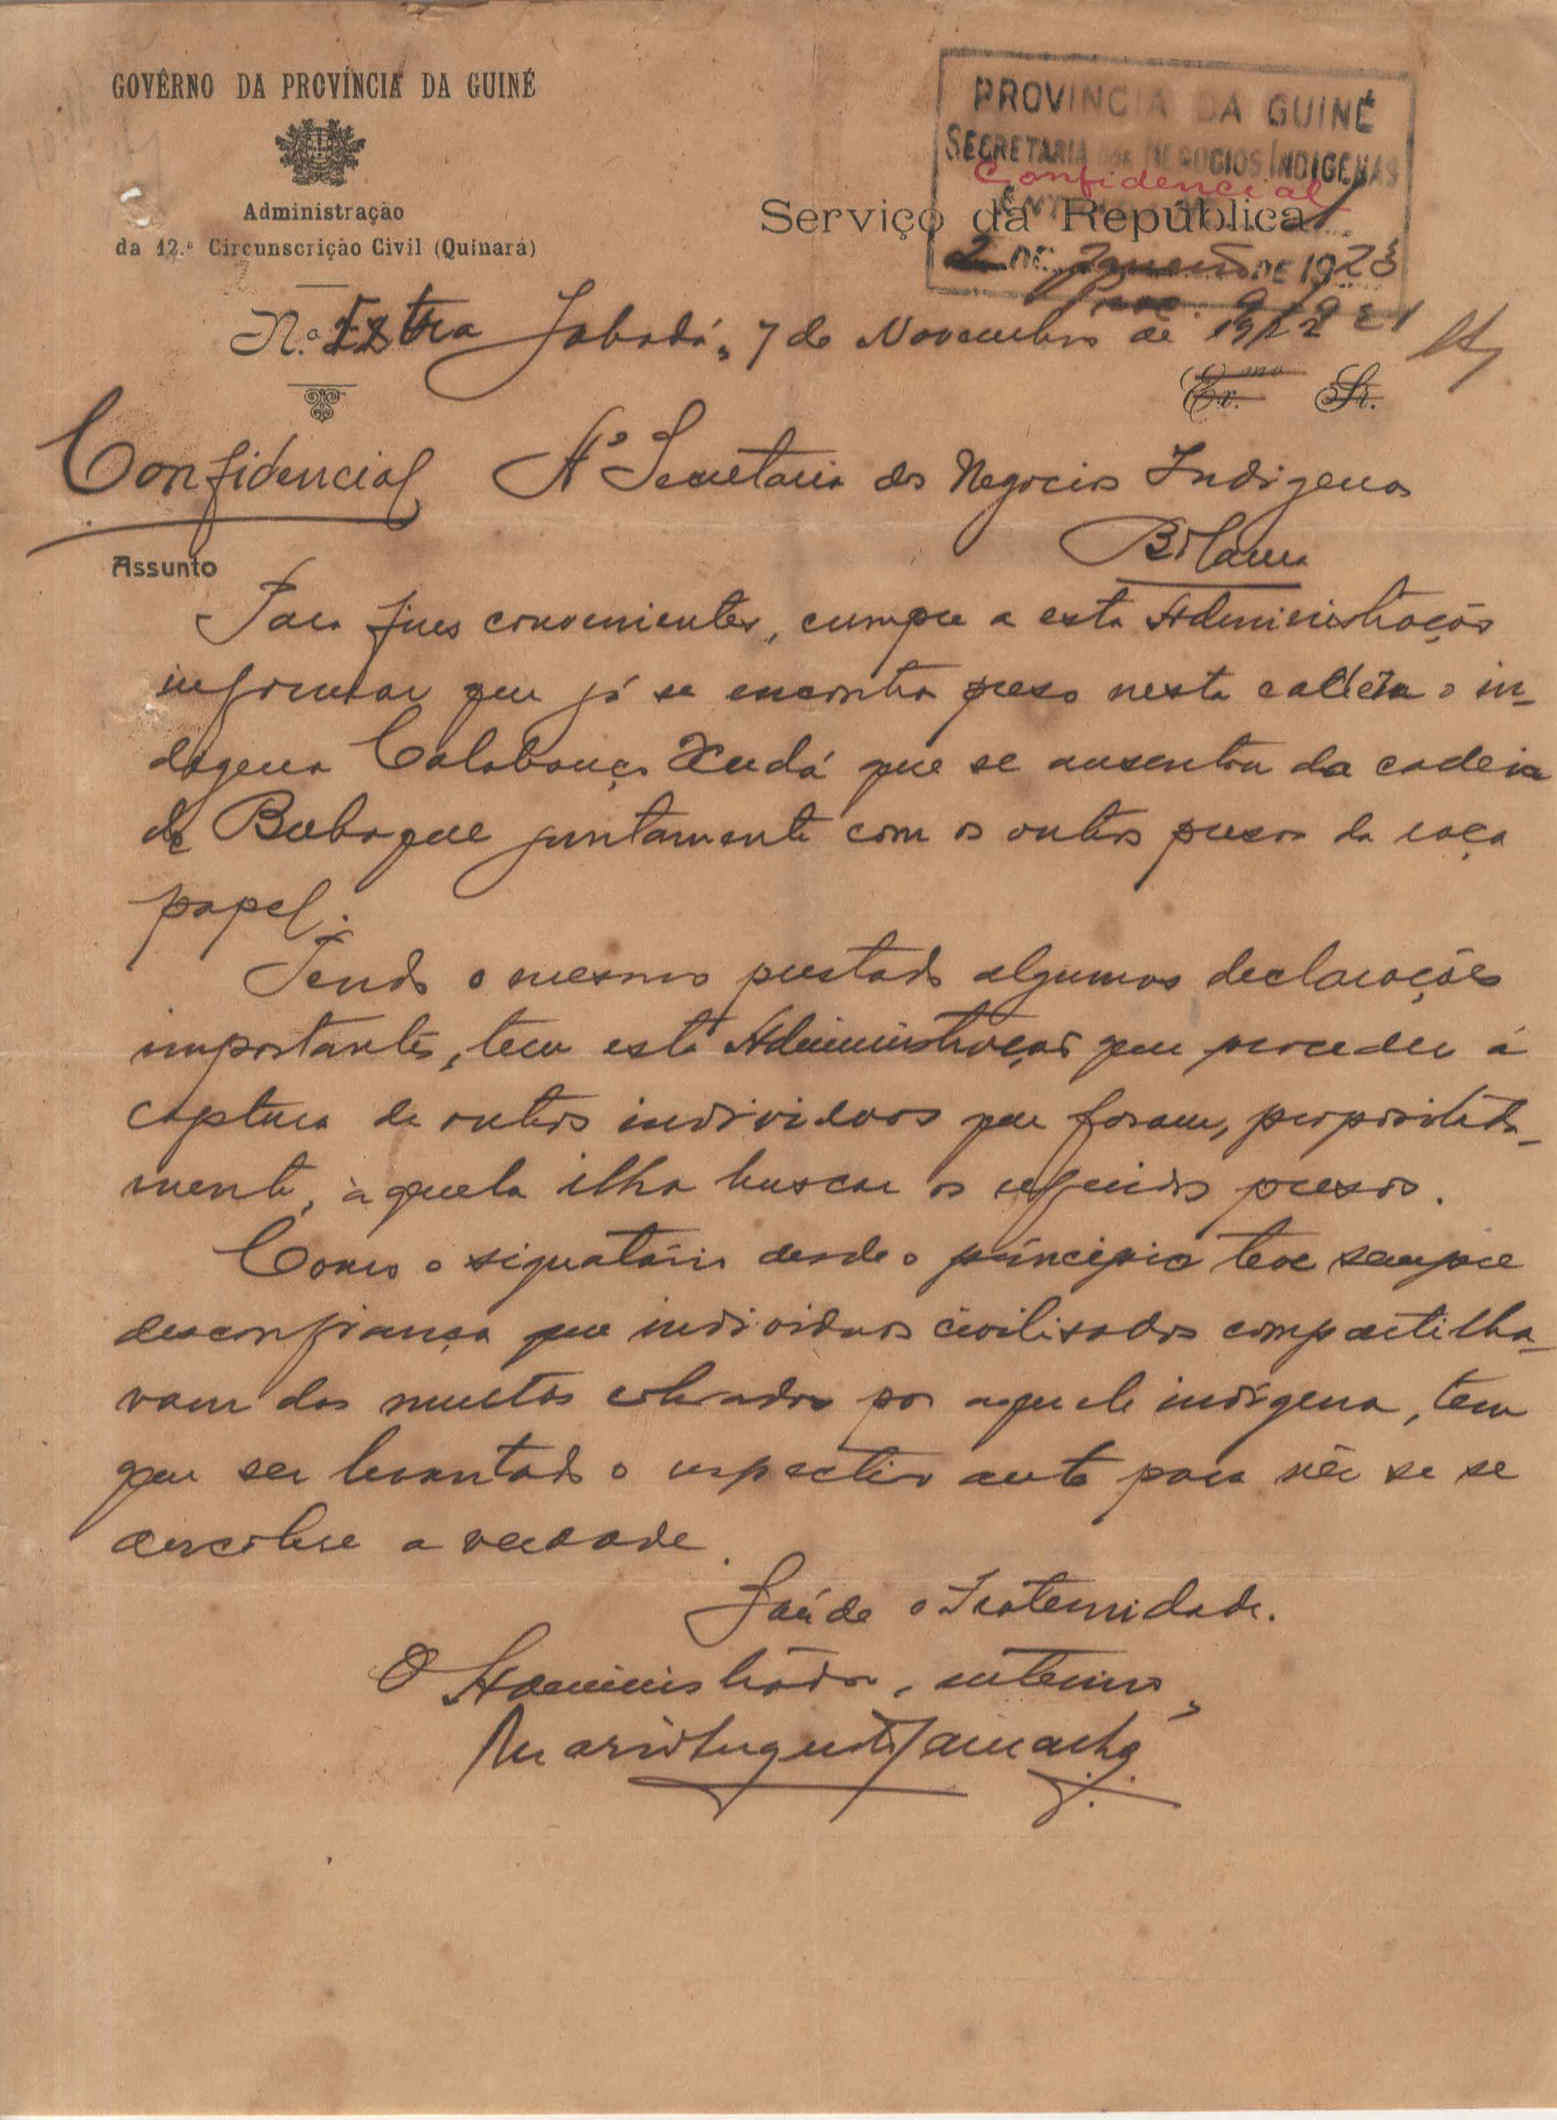 GOVÊRNO DA PROVÍNCIA DA GUINÉ
Administração
da 12.ª Circunscrição Civil (Quinará)
PROVINCIA DA GUINÉ
SECRETARIA DOS NEGOCIOS INDIGENAS
Confidencial
Serviço da República
2 DE Janeiro DE 1923
N.º Extra Jabadá, 7 de Novembro de 1922
Ex.mo Sr.
Confidencial
Á Secretaria dos Negocios Indigenas
Bolama
Assunto
Para fins convenientes, cumpre a esta Administração
informar que já se encontra preso nesta cadeia o in-
digena Calabouço Xudá que se ausentou da cadeia
de Bubaque juntamente com os outros presos da raça
papel.
Tendo o mesmo prestado algumas declarações
importantes, tem esta Administração que proceder á
captura de outros individuos que foram, propositada-
mente, àquela ilha buscar os referidos presos.
Como o signatário desde o principio teve sempre
desconfiança que individuos civilisados compartilha-
vam das multas cobradas por aquele indígena, tem
que ser levantado o respectivo auto para vêr se se
descobre a verdade.
Saúde e Fraternidade.
O Administrador, interino,